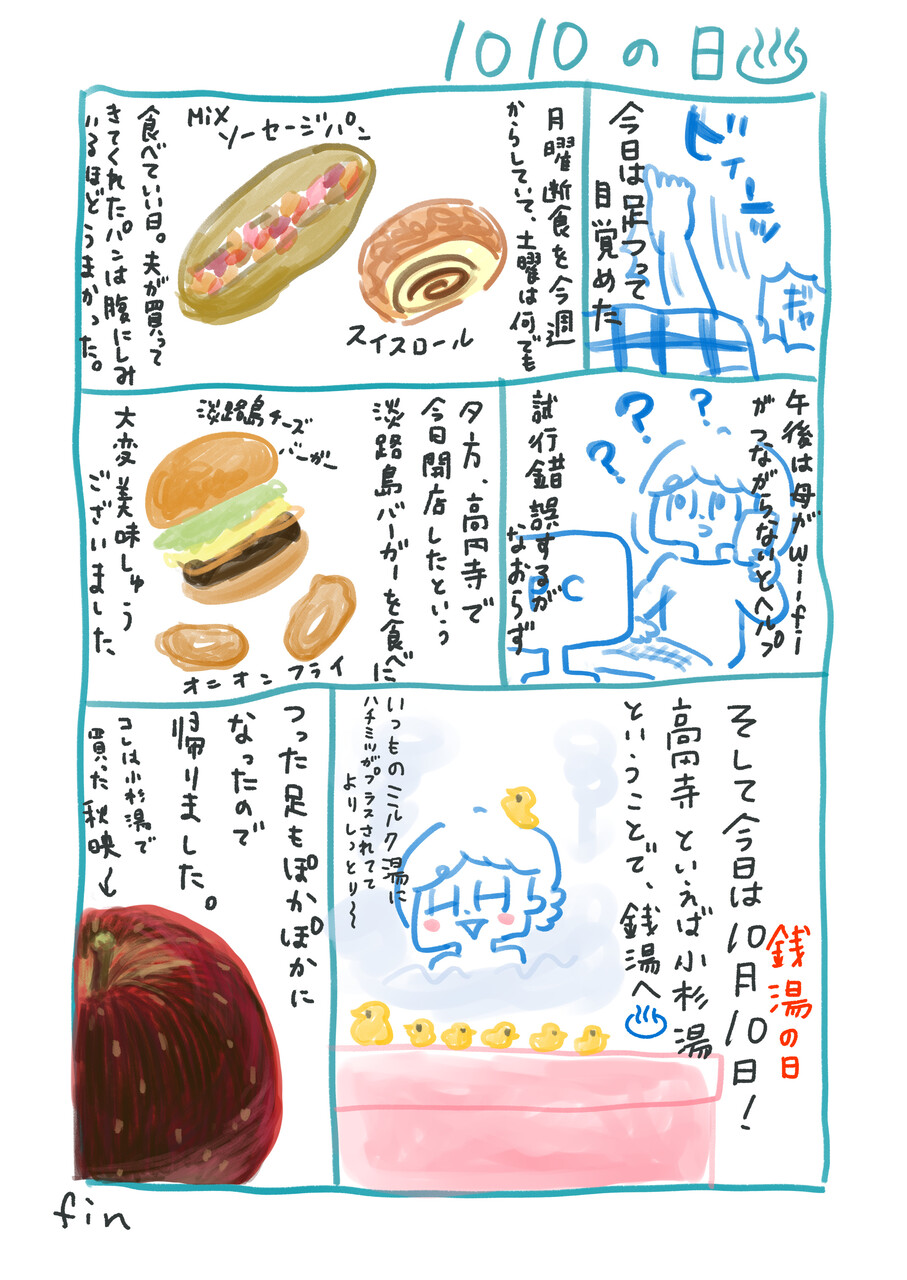 1010の日♨
ビィーーッ
ギャ
今日は足つって
目覚めた
月曜断食を今週
からしていて、土曜は何でも
MiX
ソーセージパン
スイスロール
食べていい日。夫が買って
きてくれたパンは腹にしみ
いるほどうまかった。
午後は母がwi-fi
がつながらないとヘルプ
???
PC
試行錯誤するが
なおらず
夕方、高円寺で
今日開店したという
淡路島バーガーを食べに
淡路島チーズ
バーガー
オニオンフライ
大変美味しゅう
ございました
銭湯の日
そして今日は10月10日!
高円寺といえば小杉湯
ということで、銭湯へ♨
いつものミルク湯に
ハチミツがプラスされてて
よりしっとり〜
つった足もぽかぽかに
なったので
帰りました。
コレは小杉湯で
買った秋映↓
fin